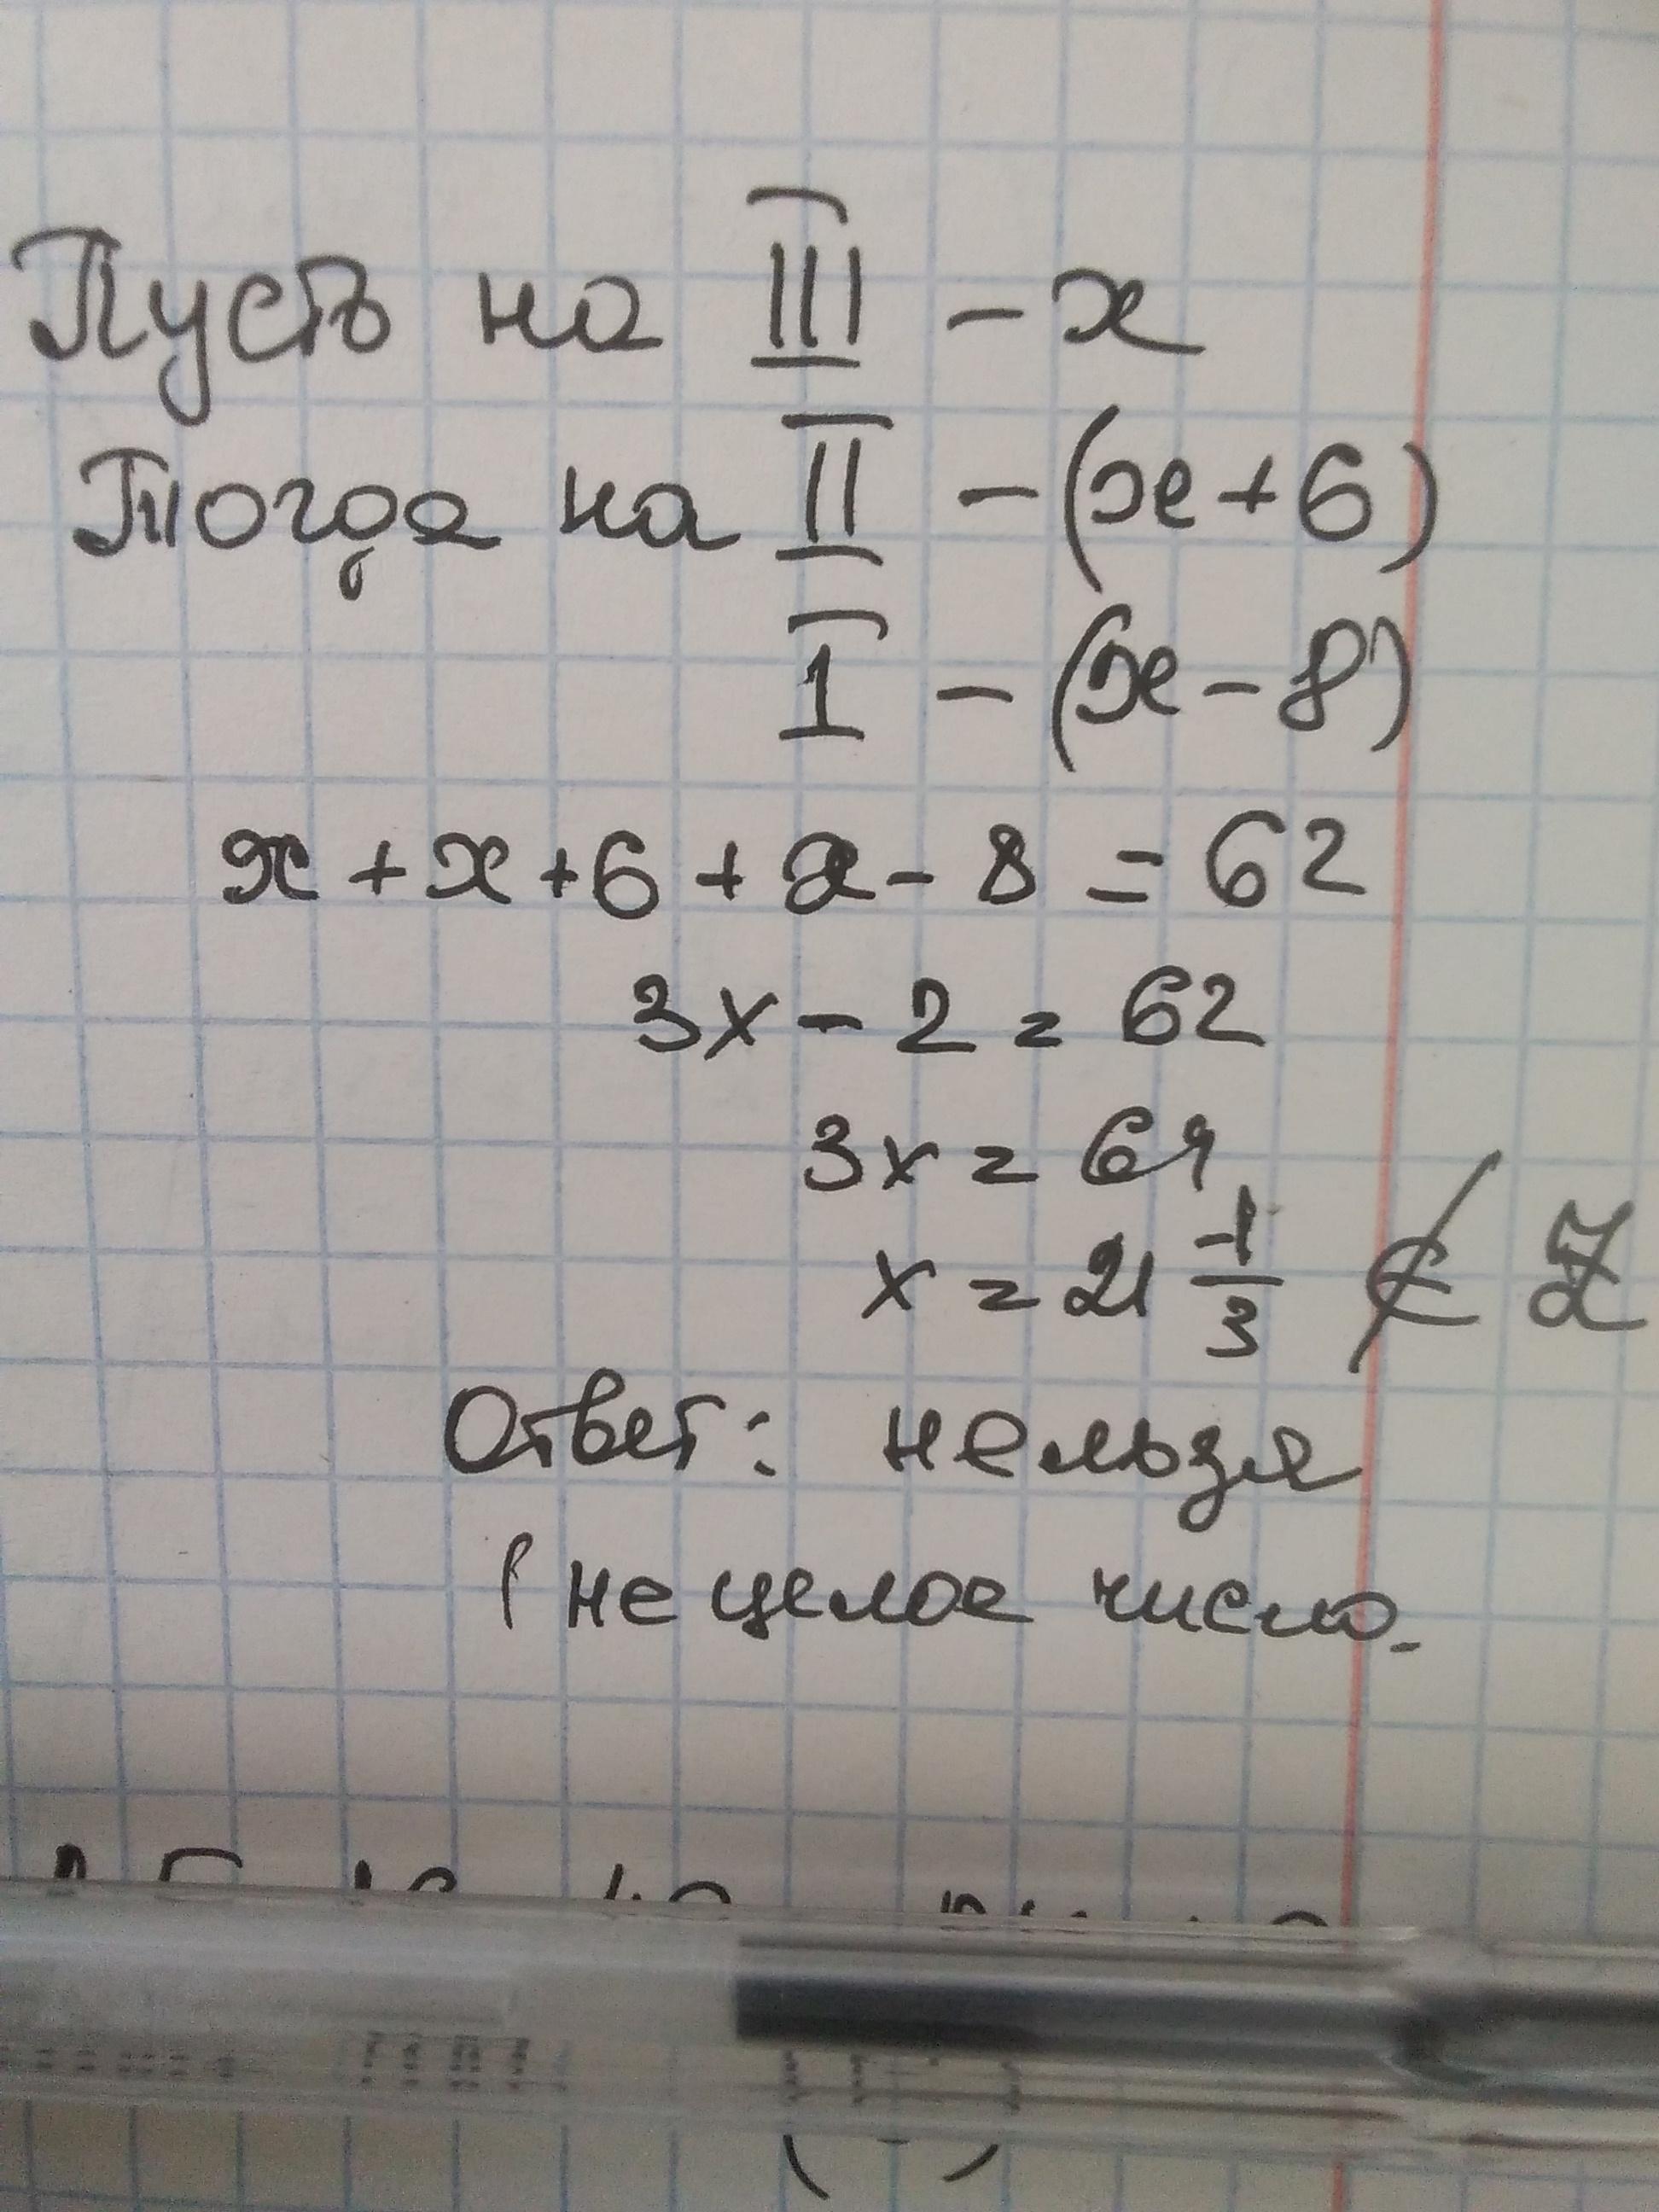 Пусть на III – x
Тогда на II – (x+6)
I – (x – 8)
x + x + 6 + x – 8 = 62
3x – 2 = 62
3x = 64
x = 21 1/3 ⊄ Z
Ответ: нельзя
( не целое число.